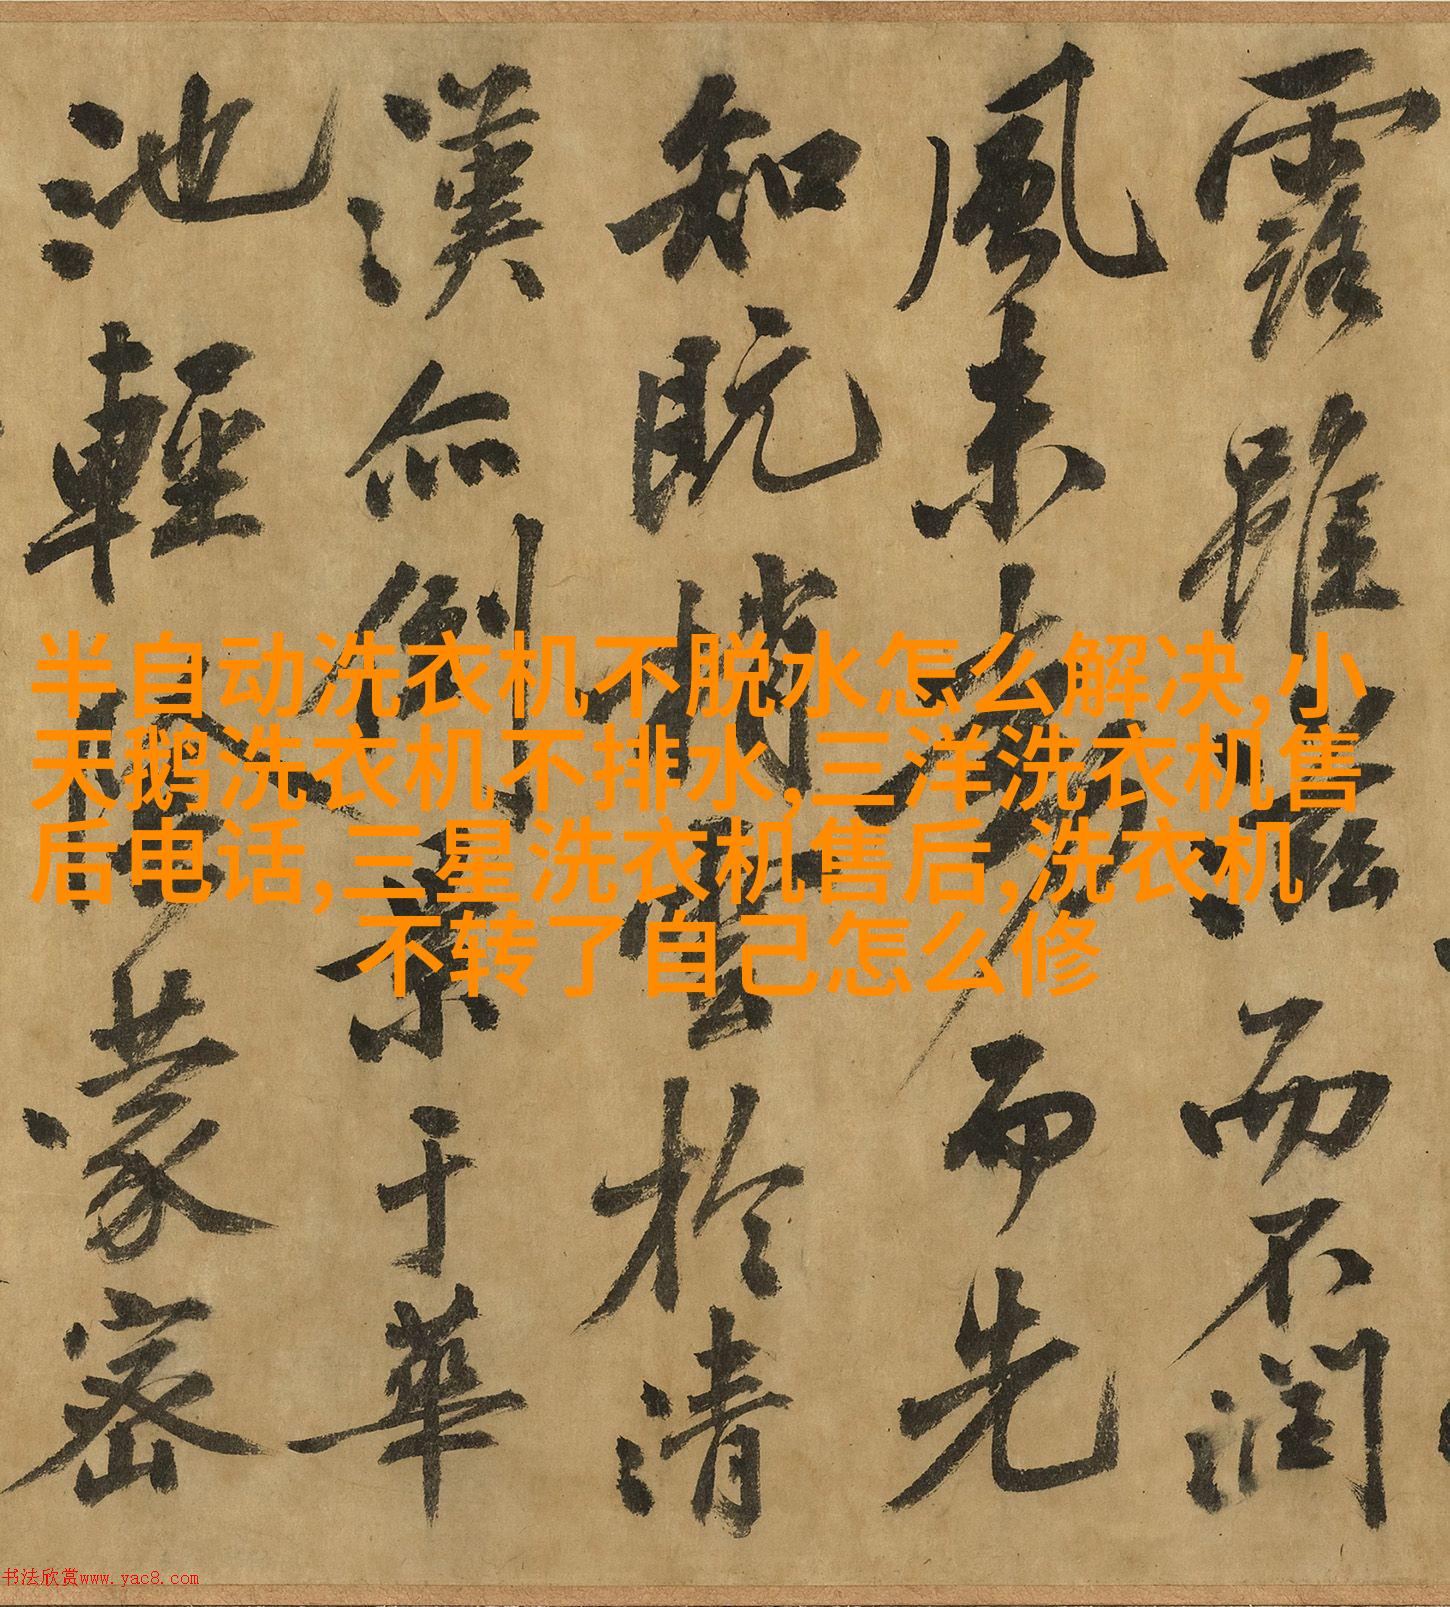 露雖而不潤
風未動而先
知既梢雲於清
漢亦倒葉于華
池輕陰蒙密
半自动洗衣机不脱水怎么解决,小
天鹅洗衣机不排水,三洋洗衣机售
后电话,三星洗衣机售后,洗衣机
不转了自己怎么修
书法欣赏www.yac8.com